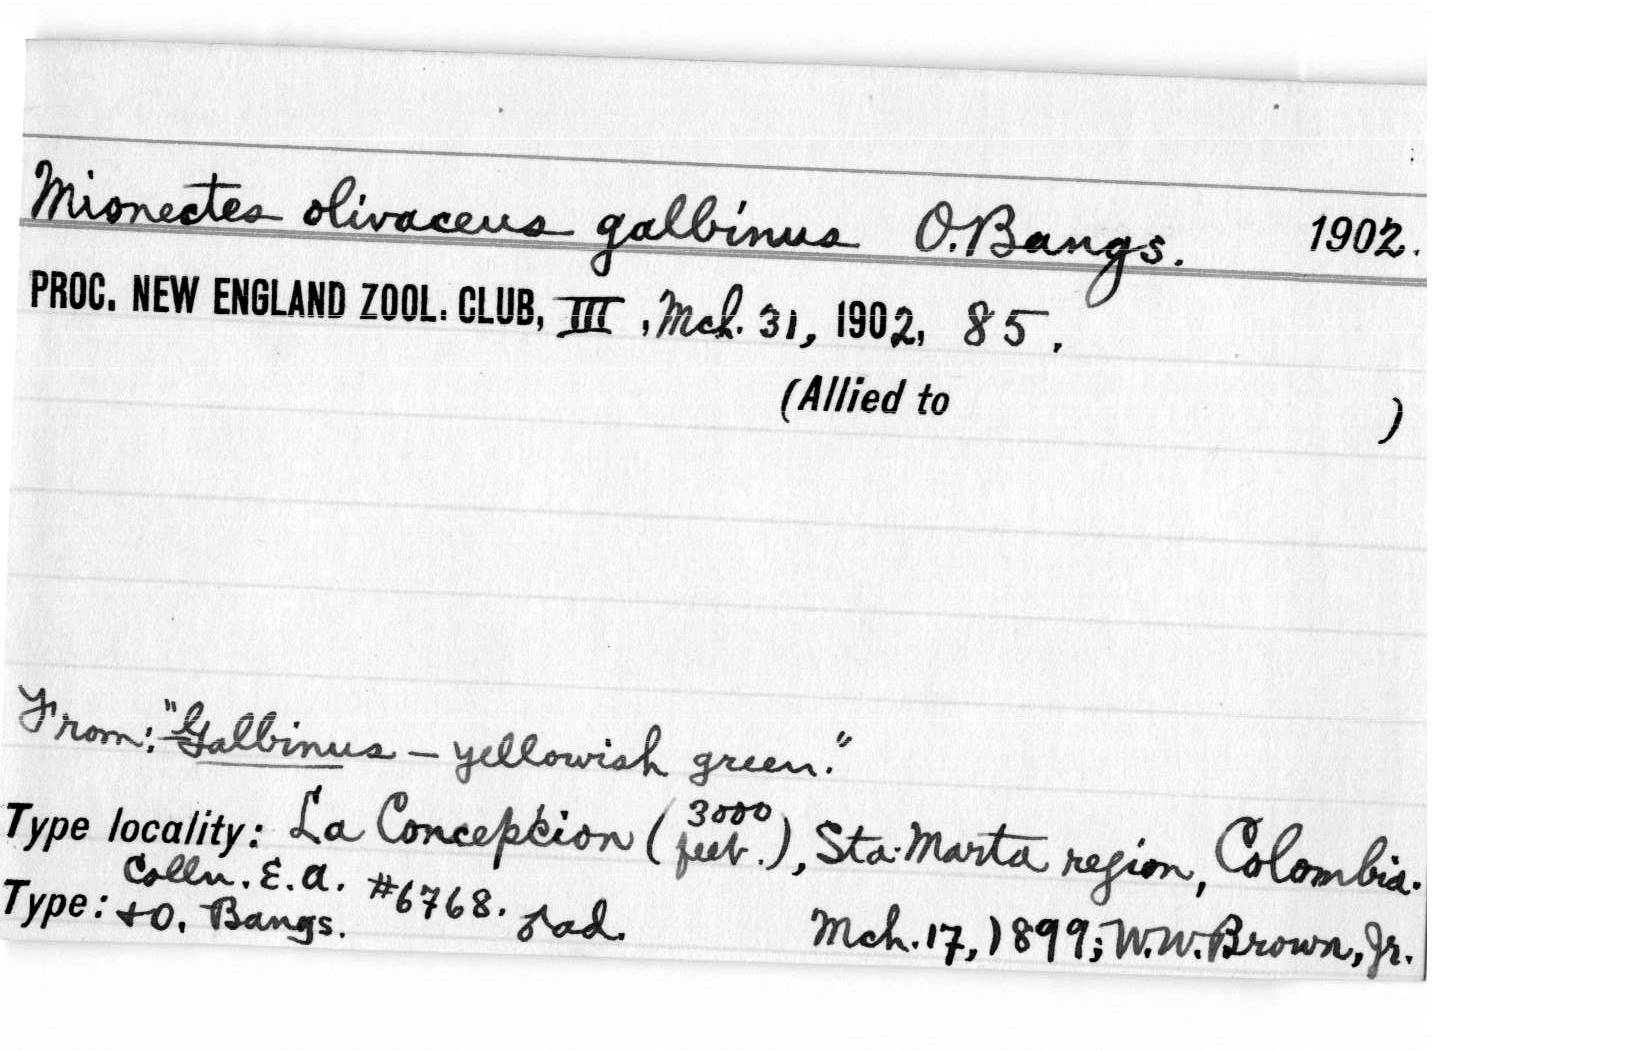 Mionectes olivaceus galbinus O. Bangs. 1902.
PROC. NEW ENGLAND ZOOL. CLUB, III, Mch. 31, 1902, 85.
(Allied to )
From: "Galbinus — yellowish green."
Type locality: La Concepcion (3000 feet.), Sta. Marta region, Colombia.
Type: Colln. E.A. + O. Bangs. #6768. ad. Mch. 17, 1899; W.W. Brown, Jr.